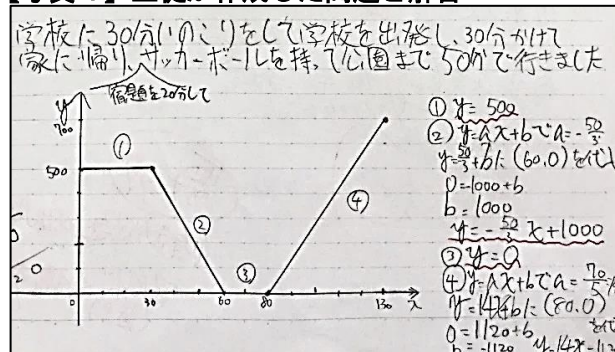 学校に30分いのこりをして学校を出発し、30分かけて
家に帰り、サッカーボールを持って公園まで50分で行きました
宿題を20分して
y
700
500
①
②
③
④
0
30
60
80
130
x
① y = 500
② y=ax+bでa=-50/3
y=-50/3+bに(60.0)を代入
0=-1000+b
b=1000
y=-50/3x+1000
③ y=0
④ y=ax+bでa=70/5
y=14x+bに(80.0)
0=1120+b
b=-1120 y=14x-112